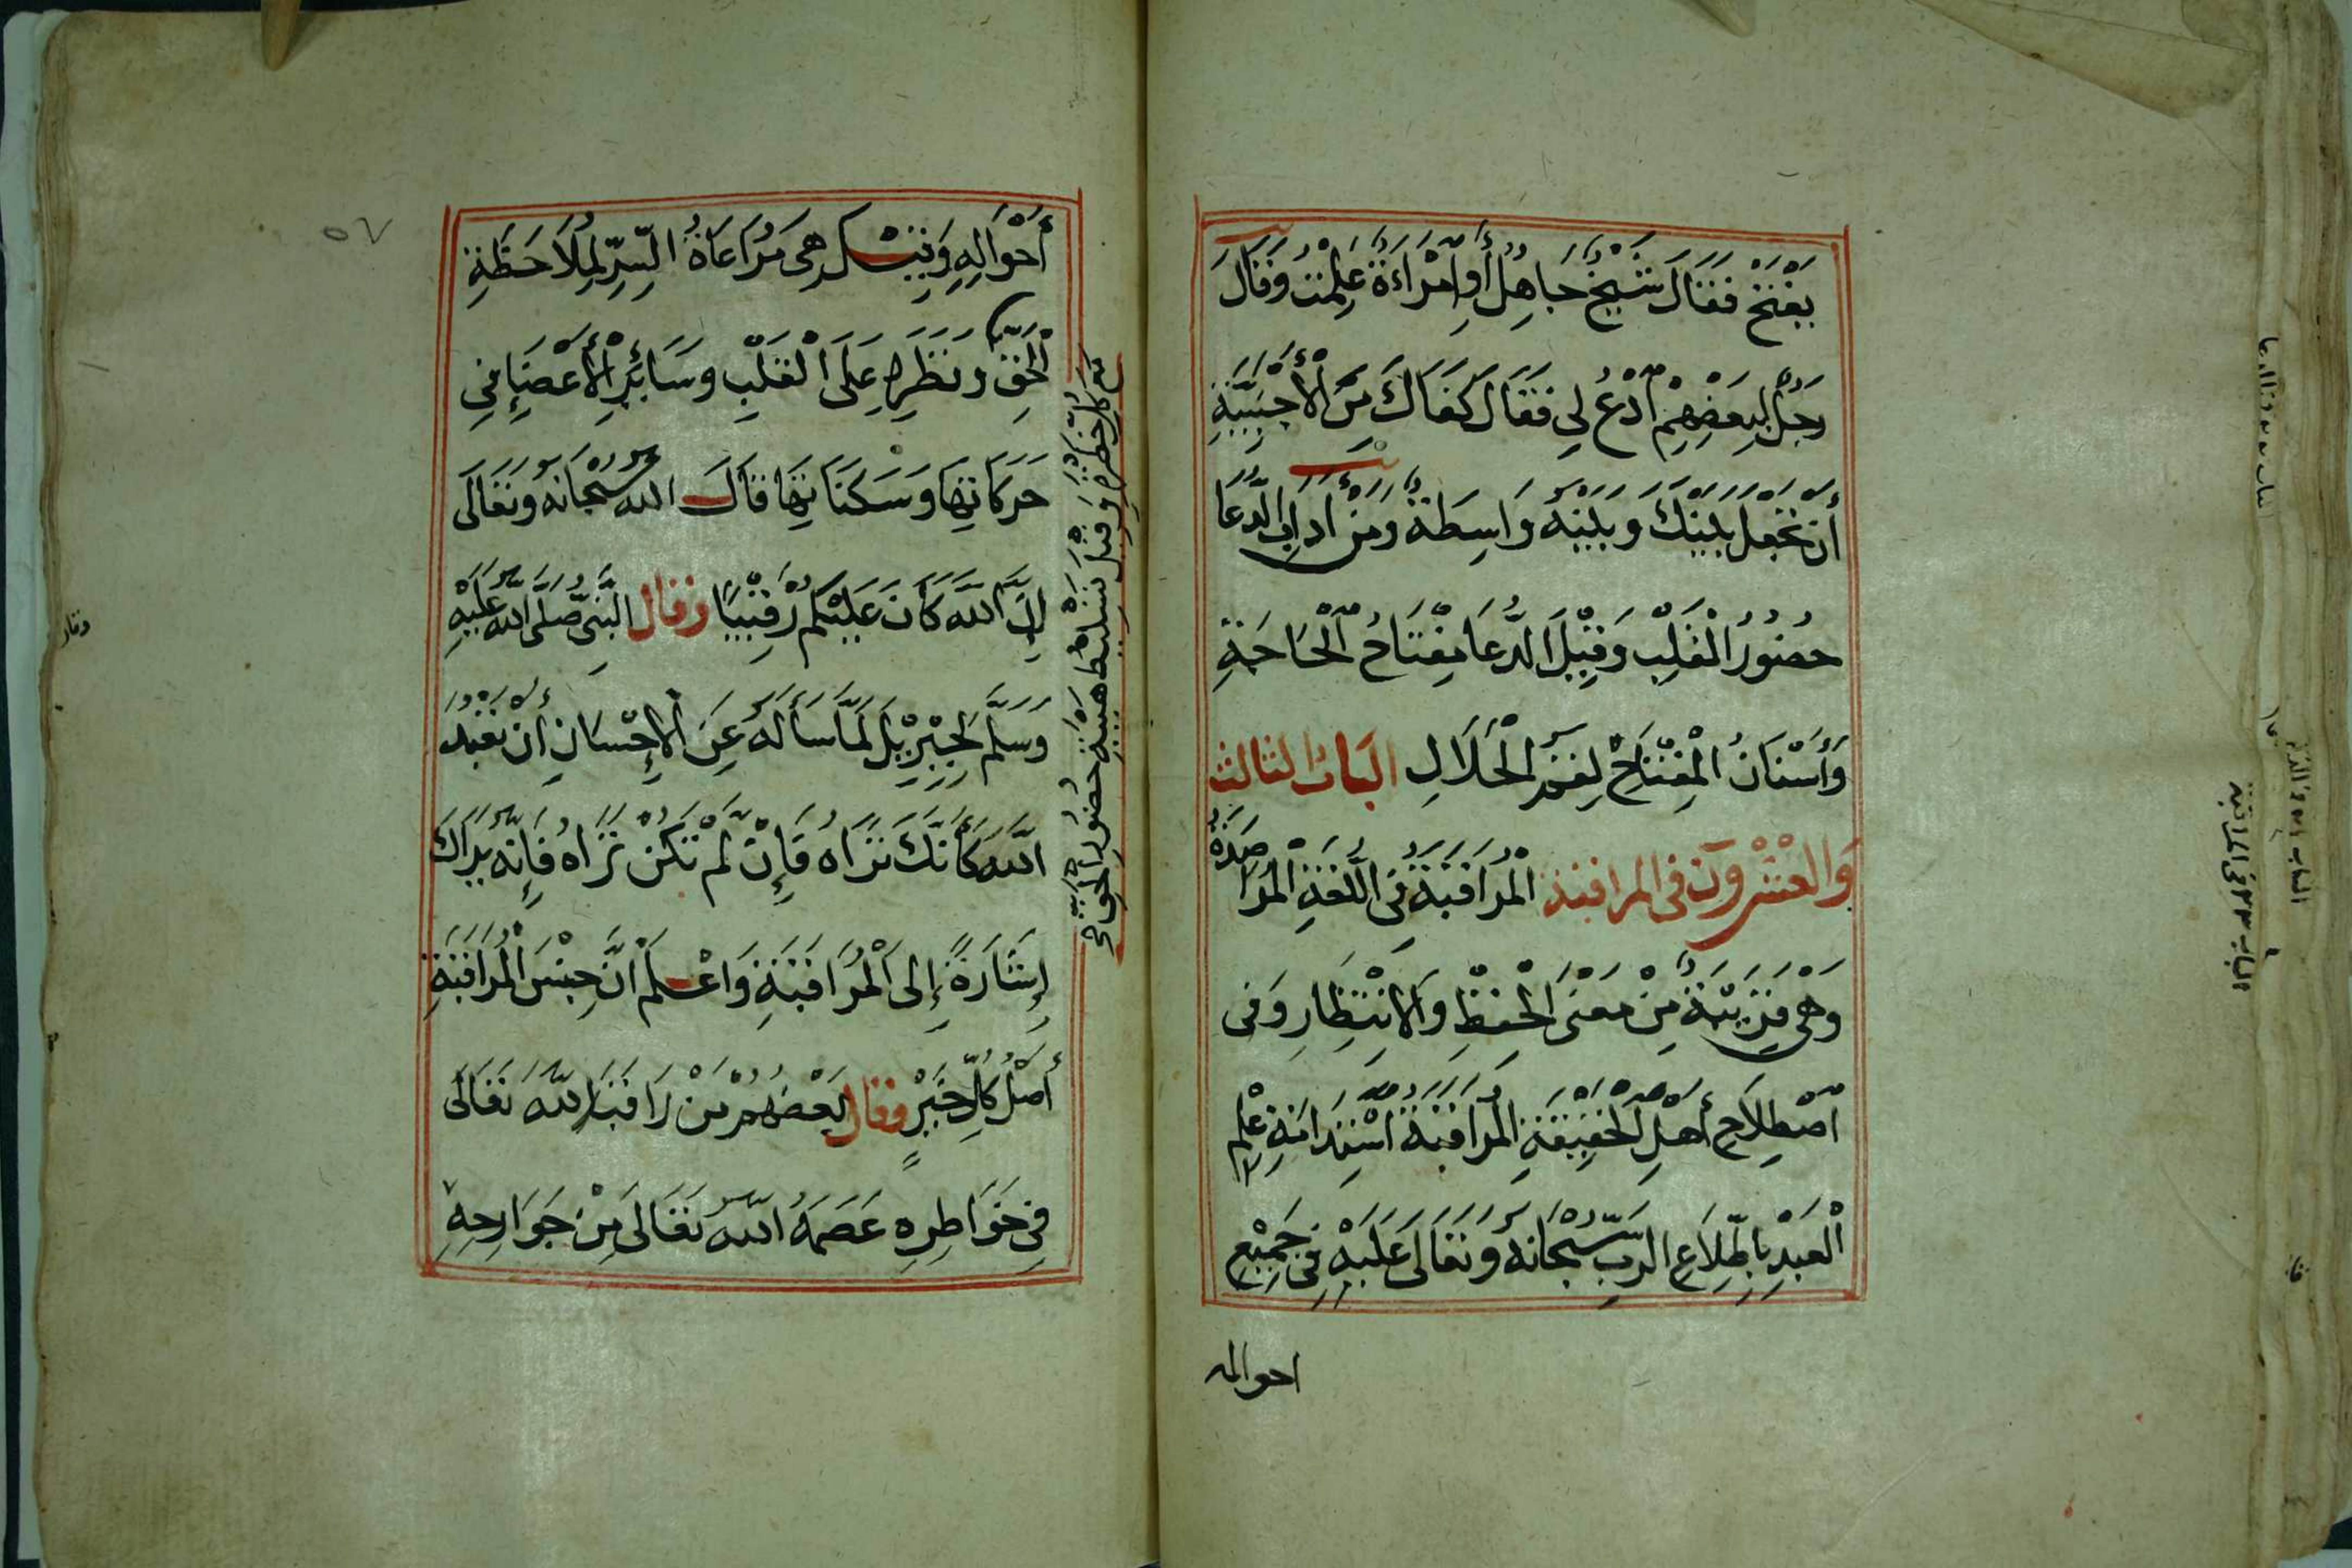 يَفْتَحْ فَقَالَ شَيْخٌ جَاهِلٌ أَوِ امْرَاءَةٌ عَلِمْتُ وَقَالَ
رَجُلٌ لِبَعْضِهِمْ اُدْعُ لِي فَقَالَ كَفَاكَ مِنَ الْأَجْنَبِيَّةِ
أَنْ تَجْعَلَ بَيْنَكَ وَبَيْنَهُ وَاسِطَةً وَمِنْ اٰدَابِ الدُّعَا
حُضُورُ الْقَلْبِ وَقِيْلَ الدُّعَا مِفْتَاحُ الْحَاجَةِ
وَأَسْنَانُ الْمِفْتَاحِ لِقَمُ الْحَلَالِ البَابُ الثالث
وَالْعِشْرُونَ فى المراقبة الْمُرَاقَبَةُ فِى اللُّغَةِ الْمُرَاصَدَةُ
وَهِيَ قَرِيْبَةٌ مِنْ مَعْنَى الْحِفْظِ وَالْاِنْتِظَارِ وَفى
اصْطِلَاحِ أَهْلِ الْحَقِيْقَةِ الْمُرَاقَبَةُ اسْتِدَامَةُ عِلْمِ
الْعَبْدِ بِاطِّلَاعِ الرَّبِّ سُبْحَانَهُ وَتَعَالَى عَلَيْهِ فِى جَمِيْعِ
احواله
أَحْوَالِهِ وَقِيْلَ هِىَ مُرَاعَاةُ السِّرِّ لِمُلَاحَظَةِ
الْحَقِّ وَنَظَرِهِ عَلَى الْقَلْبِ وَسَائِرِ الْأَعْضَاءِ فِى
حَرَكَاتِهَا وَسَكَنَاتِهَا قَالَ اللّٰهُ سُبْحَانَهُ وَتَعَالَى
إِنَّ اللّٰهَ كَانَ عَلَيْكُمْ رَقِيْبًا وَقَالَ النَّبِىُّ صَلَّى اللّٰهُ عَلَيْهِ
وَسَلَّمَ لِجِبْرِيْلَ لَمَّا سَأَلَهُ عَنِ الْإِحْسَانِ أَنْ تَعْبُدَ
اللّٰهَ كَأَنَّكَ تَرَاهُ فَإِنْ لَمْ تَكُنْ تَرَاهُ فَإِنَّهُ يَرَاكَ
إِشَارَةً إِلَى الْمُرَاقَبَةِ وَاعْلَمْ أَنَّ جِنْسَ الْمُرَاقَبَةِ
أَصْلُ كُلِّ خَيْرٍ فقال بَعْضُهُمْ مَنْ رَاقَبَ اللّٰهَ تَعَالَى
فِى خَوَاطِرِهِ عَصَمَهُ اللّٰهُ تَعَالَى مِنْ جَوَارِحِهِ
مع كل خطرة وقيل تسليط هيبة حضور الحق
٥٧